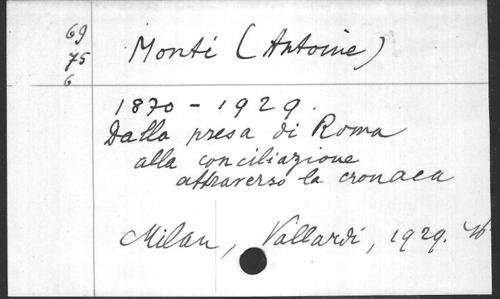 69
75
6
Monti (Antoine)
1870 - 1929.
Dalla presa di Roma
alla conciliazione
attraverso la cronaca
Milan, Vallardi, 1929.